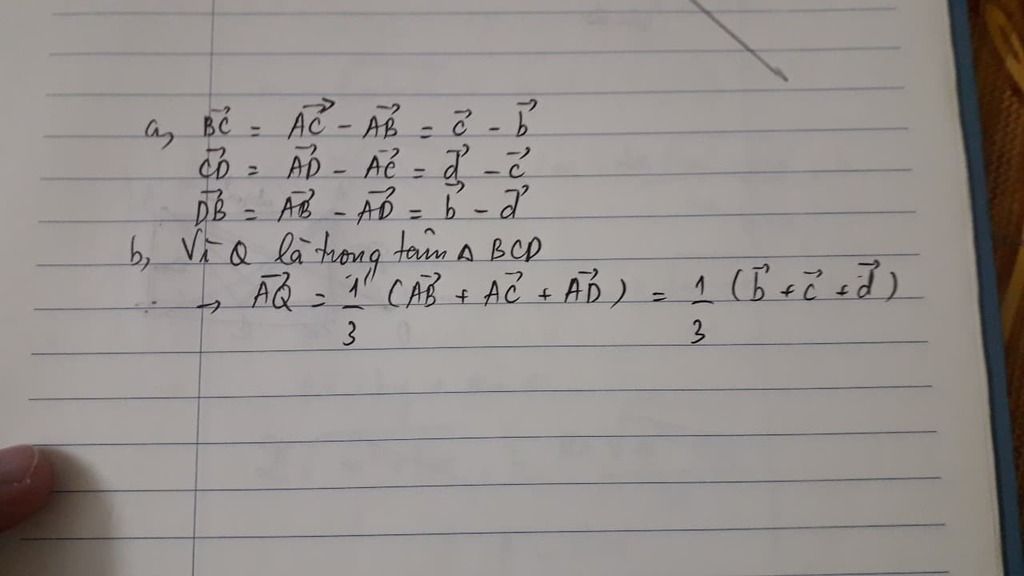 a, BC⃗ = AC⃗ - AB⃗ = c⃗ - b⃗
CD⃗ = AD⃗ - AC⃗ = d⃗ - c⃗
DB⃗ = AB⃗ - AD⃗ = b⃗ - d⃗
b, Vì Q là trọng tâm Δ BCD
→ AQ⃗ = 1/3 (AB⃗ + AC⃗ + AD⃗) = 1/3 (b⃗ + c⃗ + d⃗)